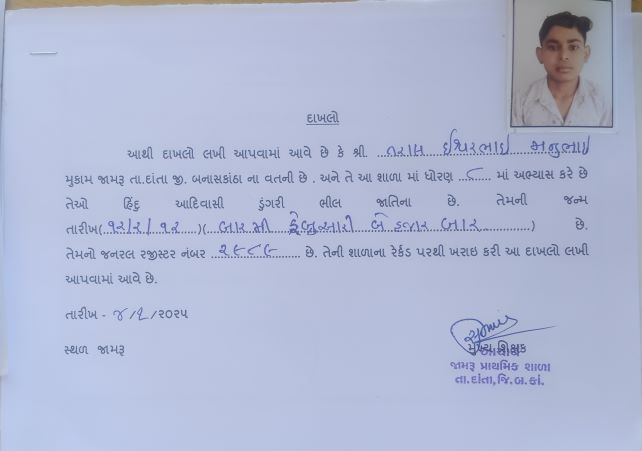 દાખલો
આથી દાખલો લખી આપવામાં આવે છે કે શ્રી ...તરાલ ઈશ્વરભાઈ મનુભાઈ
મુકામ જામરૂ તા.દાંતા જી. બનાસકાંઠા ના વતની છે . અને તે આ શાળા માં ધોરણ ...૮... માં અભ્યાસ કરે છે
તેઓ હિંદુ આદિવાસી ડુંગરી ભીલ જાતિના છે. તેમની જન્મ
તારીખ(૧૨/૨/૧૨)(બારમી ફેબ્રુઆરી બે હજાર બાર) છે.
તેમનો જનરલ રજીસ્ટર નંબર ...૨૯૮૯... છે. તેની શાળાના રેકર્ડ પરથી ખરાઇ કરી આ દાખલો લખી
આપવામાં આવે છે.
તારીખ - ૪/૨/૨૦૨૫
સ્થળ જામરૂ
મુખ્ય શિક્ષક
આચાર્ય
જામરૂ પ્રાથમિક શાળા
તા.દાંતા,જિ.બ.કાં.